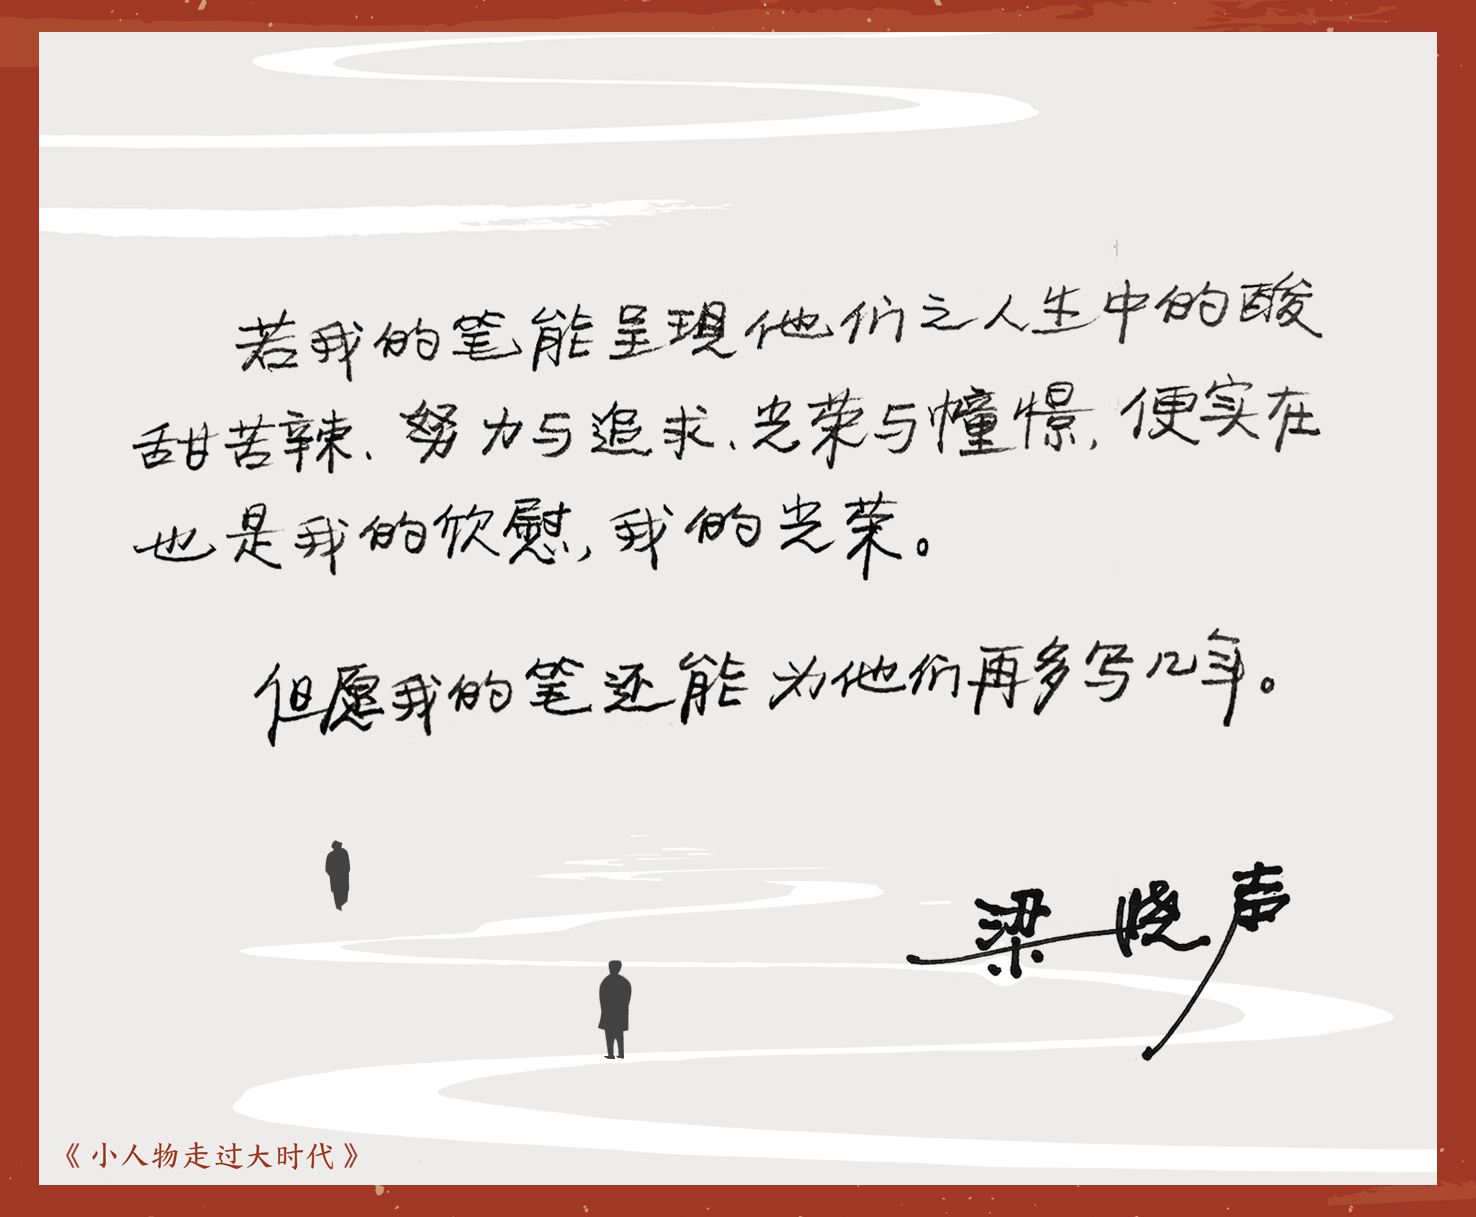 若我的笔能呈現他们之人生中的酸
甜苦辣、努力与追求、光荣与憧憬，便实在
也是我的欣慰，我的光荣。
但愿我的笔还能为他们再多写几年。
梁晓声
《小人物走过大时代》